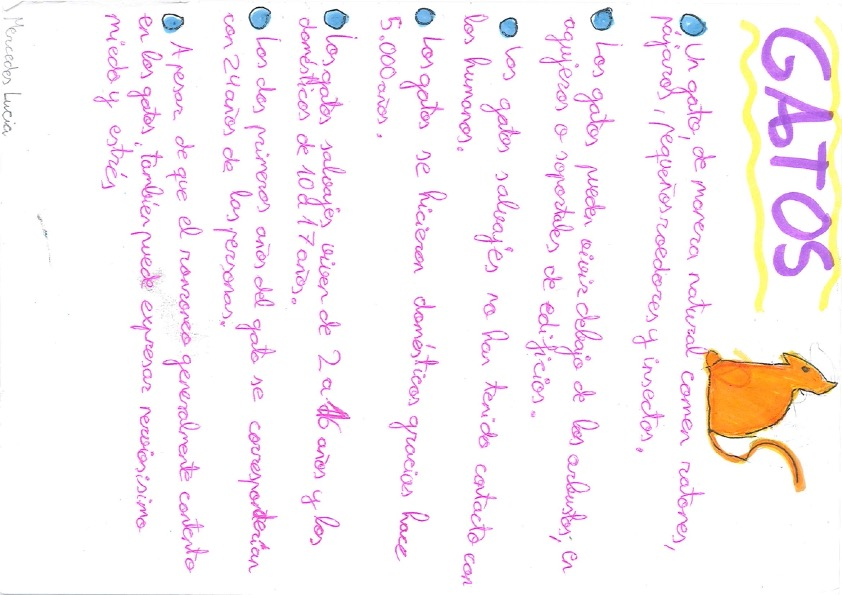 GATOS
Un gato, de manera natural comen ratones,
pájaros, pequeños roedores y insectos.
Los gatos pueden vivir debajo de los arbustos, en
agujeros o soportales de edificios.
Los gatos salvajes no han tenido contacto con
los humanos.
Los gatos se hicieron domésticos gracias hace
5.000 años.
Los gatos salvajes viven de 2 a 16 años y los
domésticos de 10 a 17 años.
Los dos primeros años del gato se corresponderían
con 24 años de las personas.
A pesar de que el ronroneo generalmente contento
en los gatos, también puede expresar nerviosisimo
miedo y estrés
Mercedes Lucia